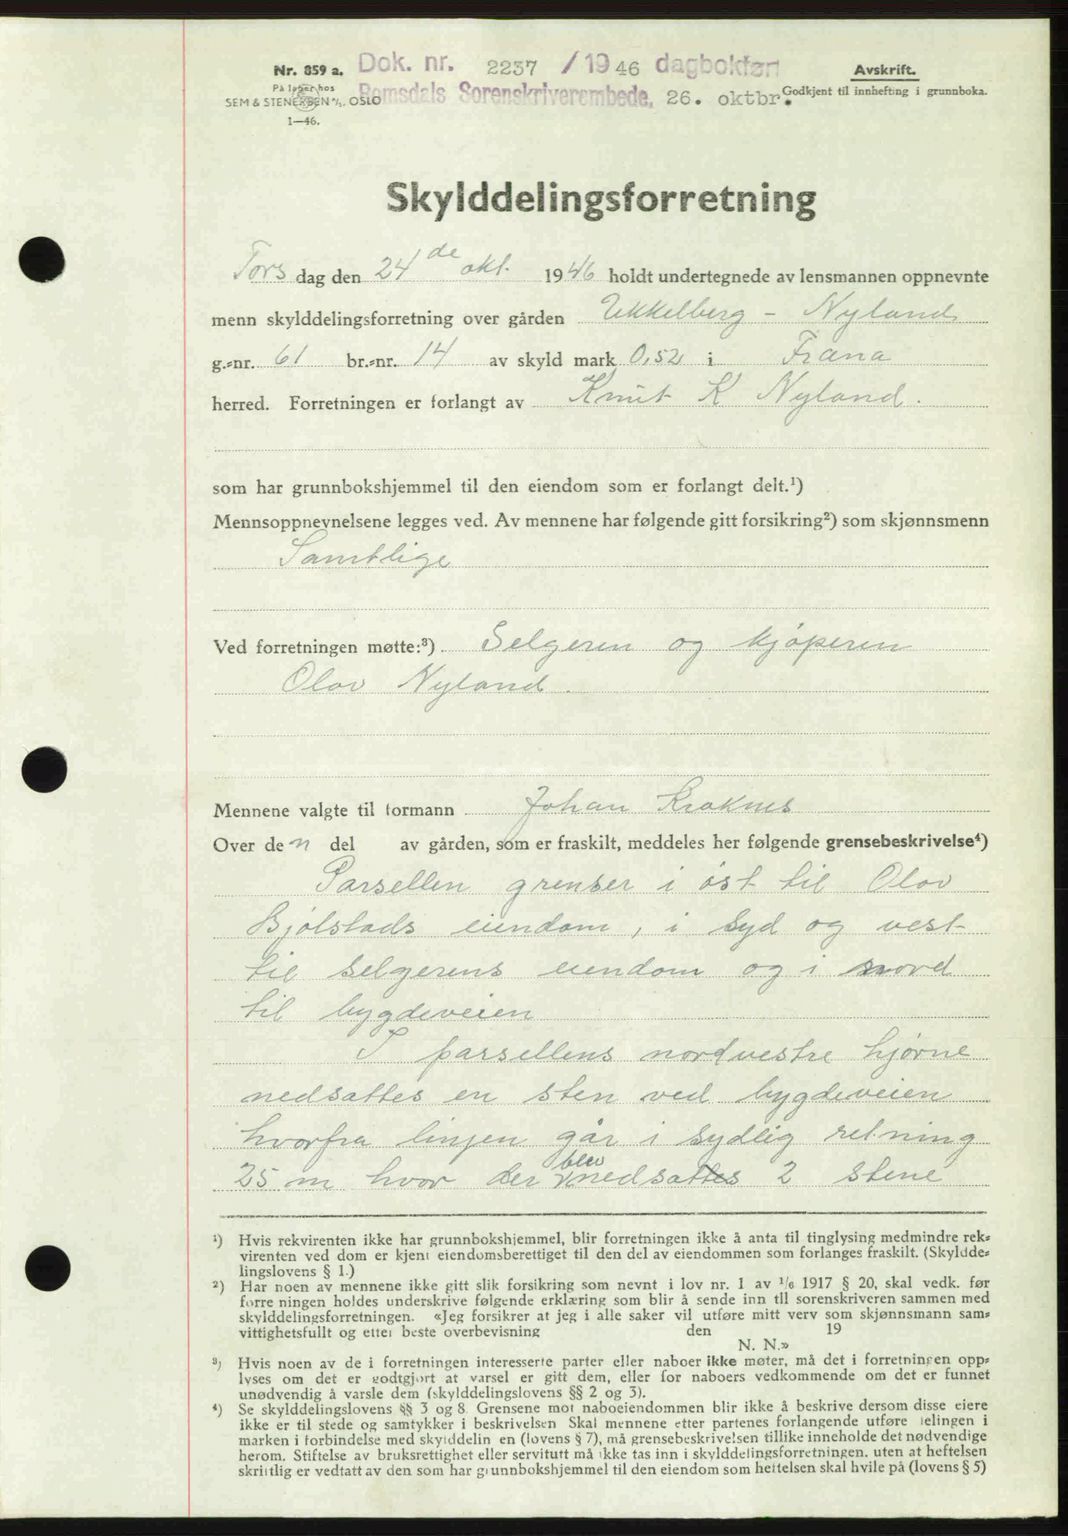 Nr. 859 a.
På lager hos
SEM & STENERSEN A/S. OSLO
1—46.
Dok. nr. 2237 / 1946 dagbokført
Romsdals Sorenskriverembede, 26. oktbr.
Avskrift.
Godkjent til innhefting i grunnboka.
Skylddelingsforretning
Tors dag den 24de okt. 1946 holdt undertegnede av lensmannen oppnevnte
menn skylddelingsforretning over gården Ukkelberg - Nyland
g.=nr. 61 br.=nr. 14 av skyld mark 0,52 i Fræna
herred. Forretningen er forlangt av Knut K Nyland.
som har grunnbokshjemmel til den eiendom som er forlangt delt.¹)
Mennsoppnevnelsene legges ved. Av mennene har følgende gitt forsikring²) som skjønnsmenn
Samtlige
Ved forretningen møtte:³) Selgeren og kjøperen
Olav Nyland.
Mennene valgte til formann Johan Kraknes
Over de n del av gården, som er fraskilt, meddeles her følgende grensebeskrivelse⁴)
Parsellen grenser i øst til Olav
Bjølstads eiendom, i syd og vest
til selgerens eiendom og i nord
til bygdeveien
I parsellens nordvestre hjørne
nedsattes en sten ved bygdeveien
hvorfra linjen går i sydlig retning
25 m hvor der blev nedsattes 2 stene
¹) Hvis rekvirenten ikke har grunnbokshjemmel, blir forretningen ikke å anta til tinglysing medmindre rek=
virenten ved dom er kjent eiendomsberettiget til den del av eiendommen som forlanges fraskilt. (Skyldde=
lingslovens § 1.)
²) Har noen av mennene ikke gitt slik forsikring som nevnt i lov nr. 1 av 1/6 1917 § 20, skal vedk. før
forretningen holdes underskrive følgende erklæring som blir å sende inn til sorenskriveren sammen med
skylddelingsforretningen. «Jeg forsikrer at jeg i alle saker vil utføre mitt verv som skjønnsmann sam=
vittighetsfullt og etter beste overbevisning den 19
N. N.»
³) Hvis noen av de i forretningen interesserte parter eller naboer ikke møter, må det i forretningen opp=
lyses om det er godtgjort at varsel er gitt dem, eller for naboers vedkommende om det er funnet
unødvendig å varsle dem (skylddelingslovens §§ 2 og 3).
⁴) Se skylddelingslovens §§ 3 og 8. Grensene mot naboeiendommen blir ikke å beskrive dersom disse eiere
ikke er til stede og samtykker i beskrivelsen Skal mennene etter partenes forlangende utføre delingen i
marken i forbindelse med skylddelin en (lovens § 7), må grensebeskrivelsen tillike inneholde det nødvendige
herom. Stiftelse av bruksrettighet eller servitutt må ikke tas inn i skylddelingsforretningen. uten at heftelsen
skriftlig er vedtatt av den som har grunnbokshjemmel til den eiendom som heftelsen skal hvile på (lovens § 5)